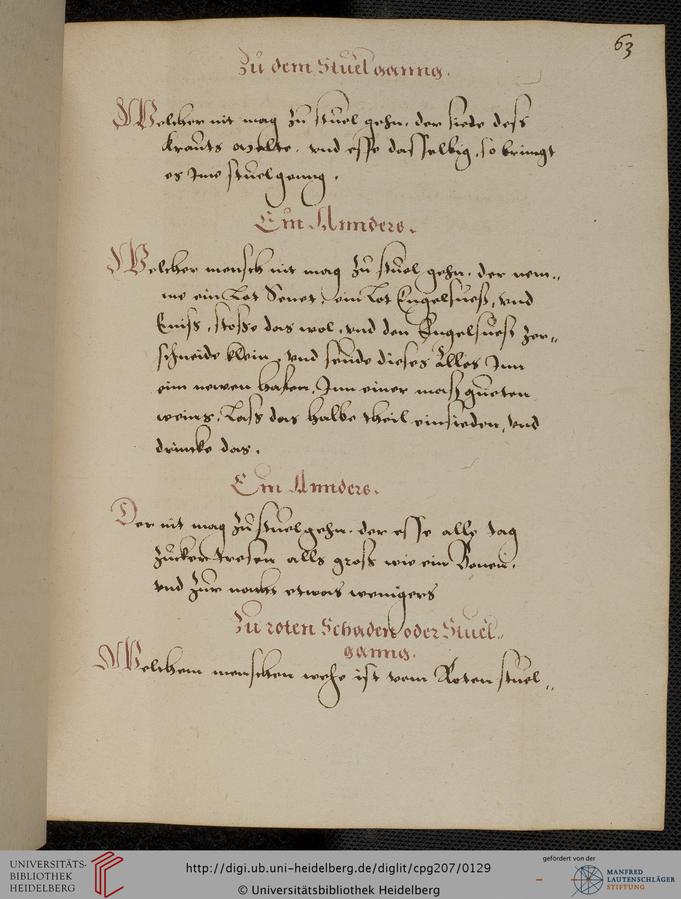 63
Zu dem Stuelganng.
Welcher nit mag zu stuel gehn, der siede dess
krauts walte, vnd esse dasselbig, so bringt
es Ime stuelgenng.
Ein Annders.
Welcher mensch nit mag zu stuel gehn, der nem„
me ein Lot Senet, ein Lot Engelsuess, vnd
Eniss, stosse das wol, vnd den Engelsuess zer„
schneide klein, vnd seude dieses Alles Inn
eim newen hafen, Inn einer mass gueten
weins, Lass das halbe theil einsieden, vnd
drincke das.
Ein Annders.
Der nit mag zu stuel gehn, der esse alle tag
zucker alls gross wie ein Bonen,
vnd zur nacht etwas wenigers
Zu roten Schaden oder Stuel„
ganng.
Welchem menschen wehe ist vom Roten stuel„
UNIVERSITÄTS-
BIBLIOTHEK
HEIDELBERG
http://digi.ub.uni-heidelberg.de/diglit/cpg207/0129
© Universitätsbibliothek Heidelberg
gefördert von der
MANFRED
LAUTENSCHLÄGER
STIFTUNG